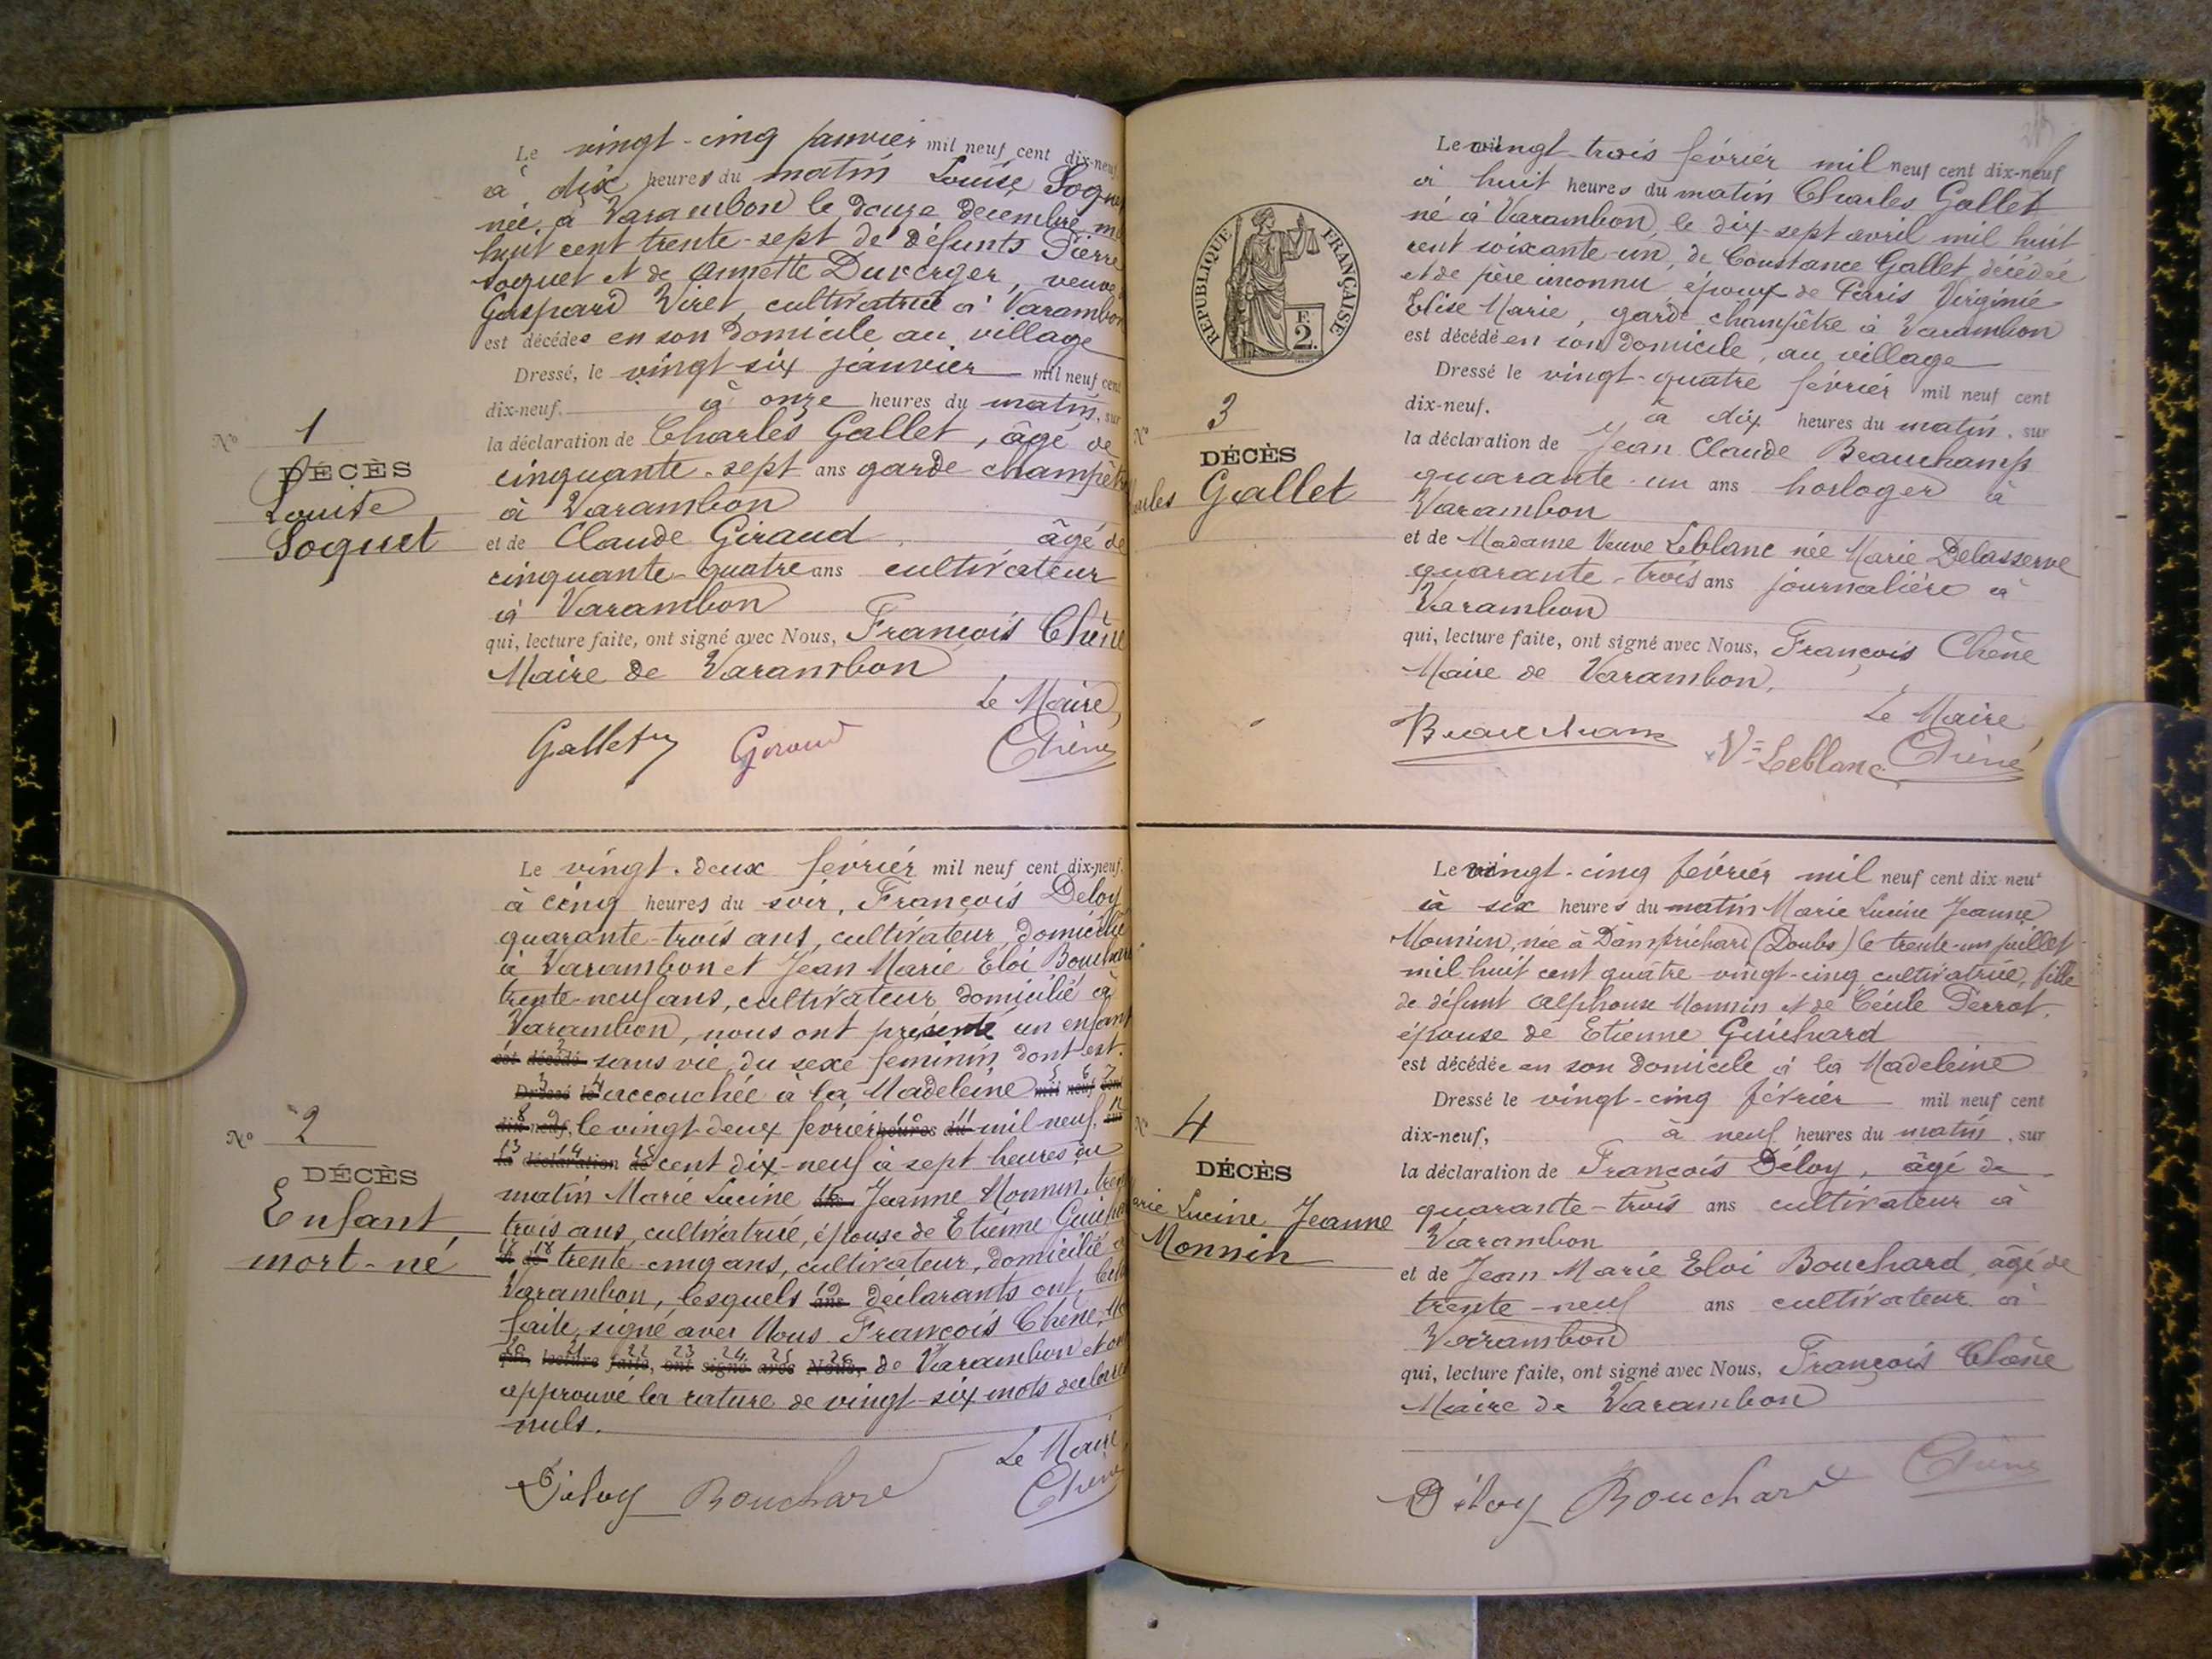 Le vingt-cinq janvier mil neuf cent dix-neuf
à dix heures du matin Louise Soquet
née à Varambon le douze décembre mil
huit cent trente-sept de défunts Pierre
Soquet et de Annette Duverger, veuve
Gaspard Viret, cultivatrice à Varambon
est décédée en son domicile au village
Dressé, le vingt six janvier mil neuf cent
dix-neuf, à onze heures du matin, sur
la déclaration de Charles Gallet, âgé de
cinquante-sept ans garde champêtre
à Varambon
et de Claude Giraud, âgé de
cinquante-quatre ans cultivateur
à Varambon
qui, lecture faite, ont signé avec Nous, François Chêne
Maire de Varambon
Le Maire,
Gallet Giraud Chêne
N° 1
DÉCÈS
Louise
Soquet
Le vingt-deux février mil neuf cent dix-neuf,
à cinq heures du soir, François Deloy
quarante-trois ans, cultivateur, domicilié
à Varambon et Jean Marie Eloi Bouchard
trente-neuf ans, cultivateur domicilié à
Varambon, nous ont présenté un enfant
est décédé 2 sans vie du sexe féminin dont est
Dressé 3 le 4 accouchée à la Madeleine mil 5 neuf 6 cent 7
dix 8 neuf 9, le vingt-deux février heures 10 du 11 mil neuf, sur 12
la 13 déclaration 14 de 15 cent dix-neuf à sept heures du
matin Marie Lucine Jeanne Monnin, trente
trois ans, cultivatrice, épouse de Etienne Guichard
et 17 de 18 trente-cinq ans, cultivateur, domicilié à
Varambon, lesquels ans 19 déclarants ont, lecture
faite, signé avec Nous François Chêne, Maire
qui 20, lecture 21 faite 22, ont 23 signé 24 avec 25 Nous 26, de Varambon et ont
approuvé la rature de vingt-six mots déclarés
nuls.
Le Maire
Déloy Bouchard Chêne
N° 2
DÉCÈS
Enfant
mort-né
Le vingt-trois février mil neuf cent dix-neuf
à huit heures du matin Charles Gallet
né à Varambon, le dix-sept avril mil huit
cent soixante-un, de Constance Gallet, décédée
et de père inconnu, époux de Paris Virginie
Elise Marie, garde champêtre à Varambon
est décédé en son domicile, au village
Dressé le vingt-quatre février mil neuf cent
dix-neuf. à dix heures du matin, sur
la déclaration de Jean Claude Beauchamp
quarante-un ans horloger à
Varambon
et de Madame Veuve Leblanc née Marie Delasserve
quarante-trois ans journalière à
Varambon
qui, lecture faite, ont signé avec Nous, François Chêne
Maire de Varambon,
Le Maire
Beauchamp Ve Leblanc Chêne
REPUBLIQUE FRANÇAISE
F.
2.
N° 3
DÉCÈS
Charles Gallet
Le vingt-cinq février mil neuf cent dix neuf
à six heures du matin Marie Lucine Jeanne
Monnin, née à Damprichard (Doubs) le trente-un juillet
mil huit cent quatre-vingt-cinq, cultivatrice, fille
de défunt Alphonse Monnin et de Cécile Perrot,
épouse de Etienne Guichard
est décédée en son domicile à la Madeleine
Dressé le vingt-cinq février mil neuf cent
dix-neuf, à neuf heures du matin, sur
la déclaration de François Déloy, âgé de
quarante-trois ans cultivateur à
Varambon
et de Jean Marie Eloi Bouchard, âgé de
trente-neuf ans cultivateur à
Varambon
qui, lecture faite, ont signé avec Nous, François Chêne
Maire de Varambon
Déloy Bouchard Chêne
N° 4
DÉCÈS
Marie Lucine Jeanne
Monnin